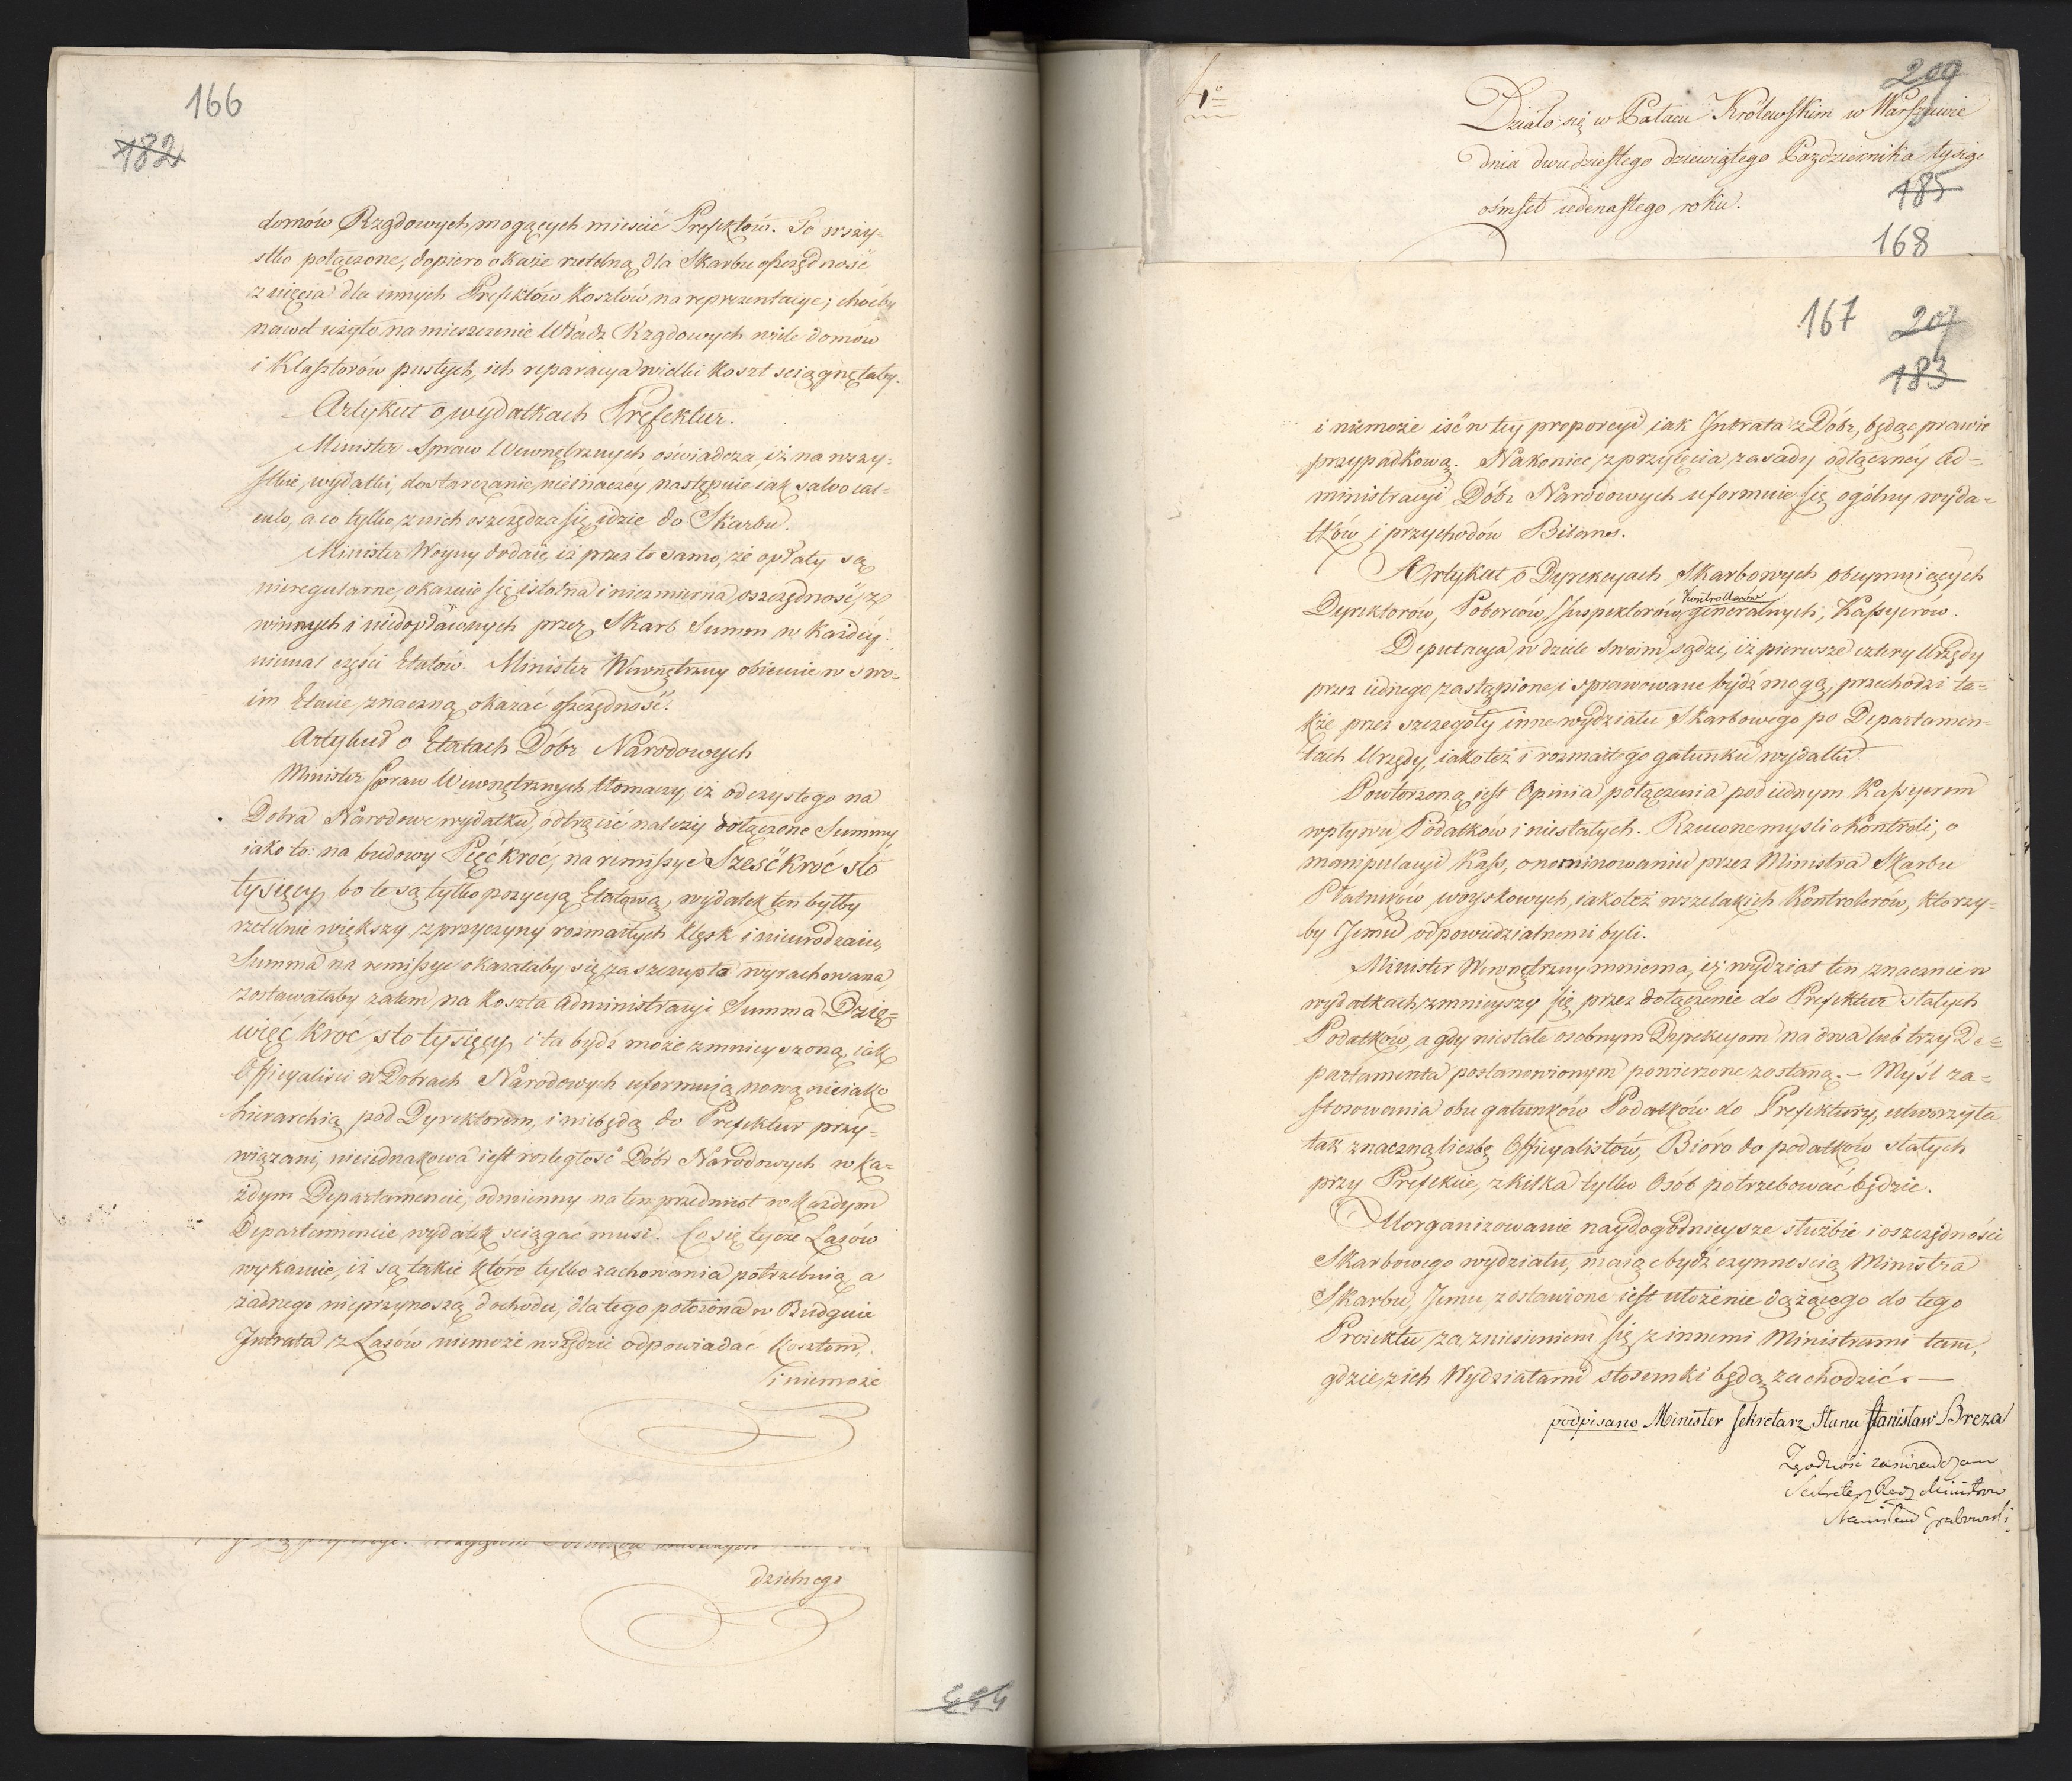 166
182
domów Rządowych, mogących mieścić Prefektów. To wszy=
stko połączone, dopiero okaże rzetelną dla Skarbu oszczędność
z ujęcia dla innych Prefektów kosztów na reprezentacye; choćby
nawet użyto na mieszczenie Władz Rządowych wiele domów
i Klasztorów pustych, ich reparacya wielki koszt sciągnęłaby.
Artykuł o wydatkach Prefektur.
Minister Spraw Wewnętrznych oświadcza, iż na wszy=
stkie wydatki, dostarczanie nieinaczéy następuie iak salvo cal=
culo, a co tylko z nich oszczędza się, idzie do Skarbu.
Minister Woyny dodaie, iż przez to samo, że opłaty są
nieregularne, okazuie się istotna i niezmierna oszczędność, z
winnych i niedopłaconych przez Skarb Summ w każdéy
niemal części Etatów. Minister Wewnętrzny obiecuie w swo=
im Etacie znaczną okazać oszczędność.
Artykuł o Etatach Dóbr Narodowych
Minister Spraw Wewnętrznych tłomaczy, iż od czystego na
Dobra Narodowe wydatku, odtrącić należy dołączone Summy
iako to: na budowy Pięćkroć, na remissye Sześćkroć sto
tysięcy, bo te są tylko pozycyą Etatową, wydatek ten byłby
rzetelnie większy z przyczyny rozmaitych klęsk i nieurodzaiu,
Summa na remissye okazałaby się za szczupło wyrachowana,
zostawałaby zatem na koszta administracyi Summa Dzie=
więć kroć sto tysięcy, i ta bydź może zmnieyszoną, iak
Officyaliści w Dobrach Narodowych uformuią nową nieiako
hierarchią pod Dyrektorem, i niebędą do Prefektur przy=
wiązani, nieiednakowa iest rozległość Dóbr Narodowych w ka=
żdym Departamencie, odmienny na ten przedmiot w każdym
Departamencie wydatek sciągać musi. Co się tycze Lasów
wykazuie, iż są takie które tylko zachowania potrzebuią, a
żadnego nieprzynoszą dochodu, dla tego położona w Budgecie
Intrata z Lasów niemoże wszędzie odpowiadać kosztom,
i niemoże
dzielnego
4o
209
Działo się w Pałacu Królewskim w Warszawie
dnia dwudziestego dziewiątego Października tysiąc
ośmset iedenastego roku.
185
168
167
207
183
i niemoże iść w tey proporcyi iak Intrata z Dóbr, będąc prawie
przypadkową. Nakoniec z przyięcia zasady odłącznéy Ad=
ministracyi Dóbr Narodowych uformuie się ogólny wyda=
tków i przychodów Bilans.
Artykuł o Dyrekcyach Skarbowych obeymuiących
Kontrollerów
Dyrektorów, Poborców, Inspektorów, generalnych, Kassyerów.
Deputacya w dziele swoim sądzi, iż pierwsze cztery Urzędy
przez iednego zastąpione i sprawowane bydź mogą, przechodzi ta=
kże przez szczegóły inne wydziału Skarbowego po Departamen=
tach Urzędy, iakoteż i rozmaitego gatunku wydatki.
Powtórzoną iest Opinia połączenia pod iednym Kassyerem
wpływu Podatków i niestałych. Rzucone mysli o Kontroli, o
manipulacyi Kass, o nominowaniu przez Ministra Skarbu
Płatników woyskowych, iakoteż wszelakich Kontrolerów, ktorzy=
by Jemu odpowiedzialnemi byli.
Minister Wewnętrzny mniema, iż wydział ten znacznie w
wydatkach zmnieyszy się, przez dołączenie do Prefektur stałych
Podatków, a gdy niestałe osobnym Dyrekcyom na dwa lub trzy De=
partamenta postanowionym powierzone zostaną. — Myśl za=
stosowania obu gatunków Podatków do Prefektury, utworzyła
tak znaczną liczbę Officyalistów, Bióro do podatków stałych
przy Prefekcie, z kilka tylko Osób potrzebować będzie.
Uorganizowanie naydogodnieysze służbie i oszczędności
Skarbowego wydziału, maiąc bydź czynnością Ministra
Skarbu, Jemu zostawione iest ułożenie dążącego do tego
Proiektu, za zniesieniem się z innemi Ministrami tam,
gdzie z ich Wydziałami stosunki będą zachodzić. —
podpisano Minister Sekretarz Stanu Stanisław Breza
Zgodność zaświadczam
Sekretarz Rady Ministrów
Stanisław Grabowski